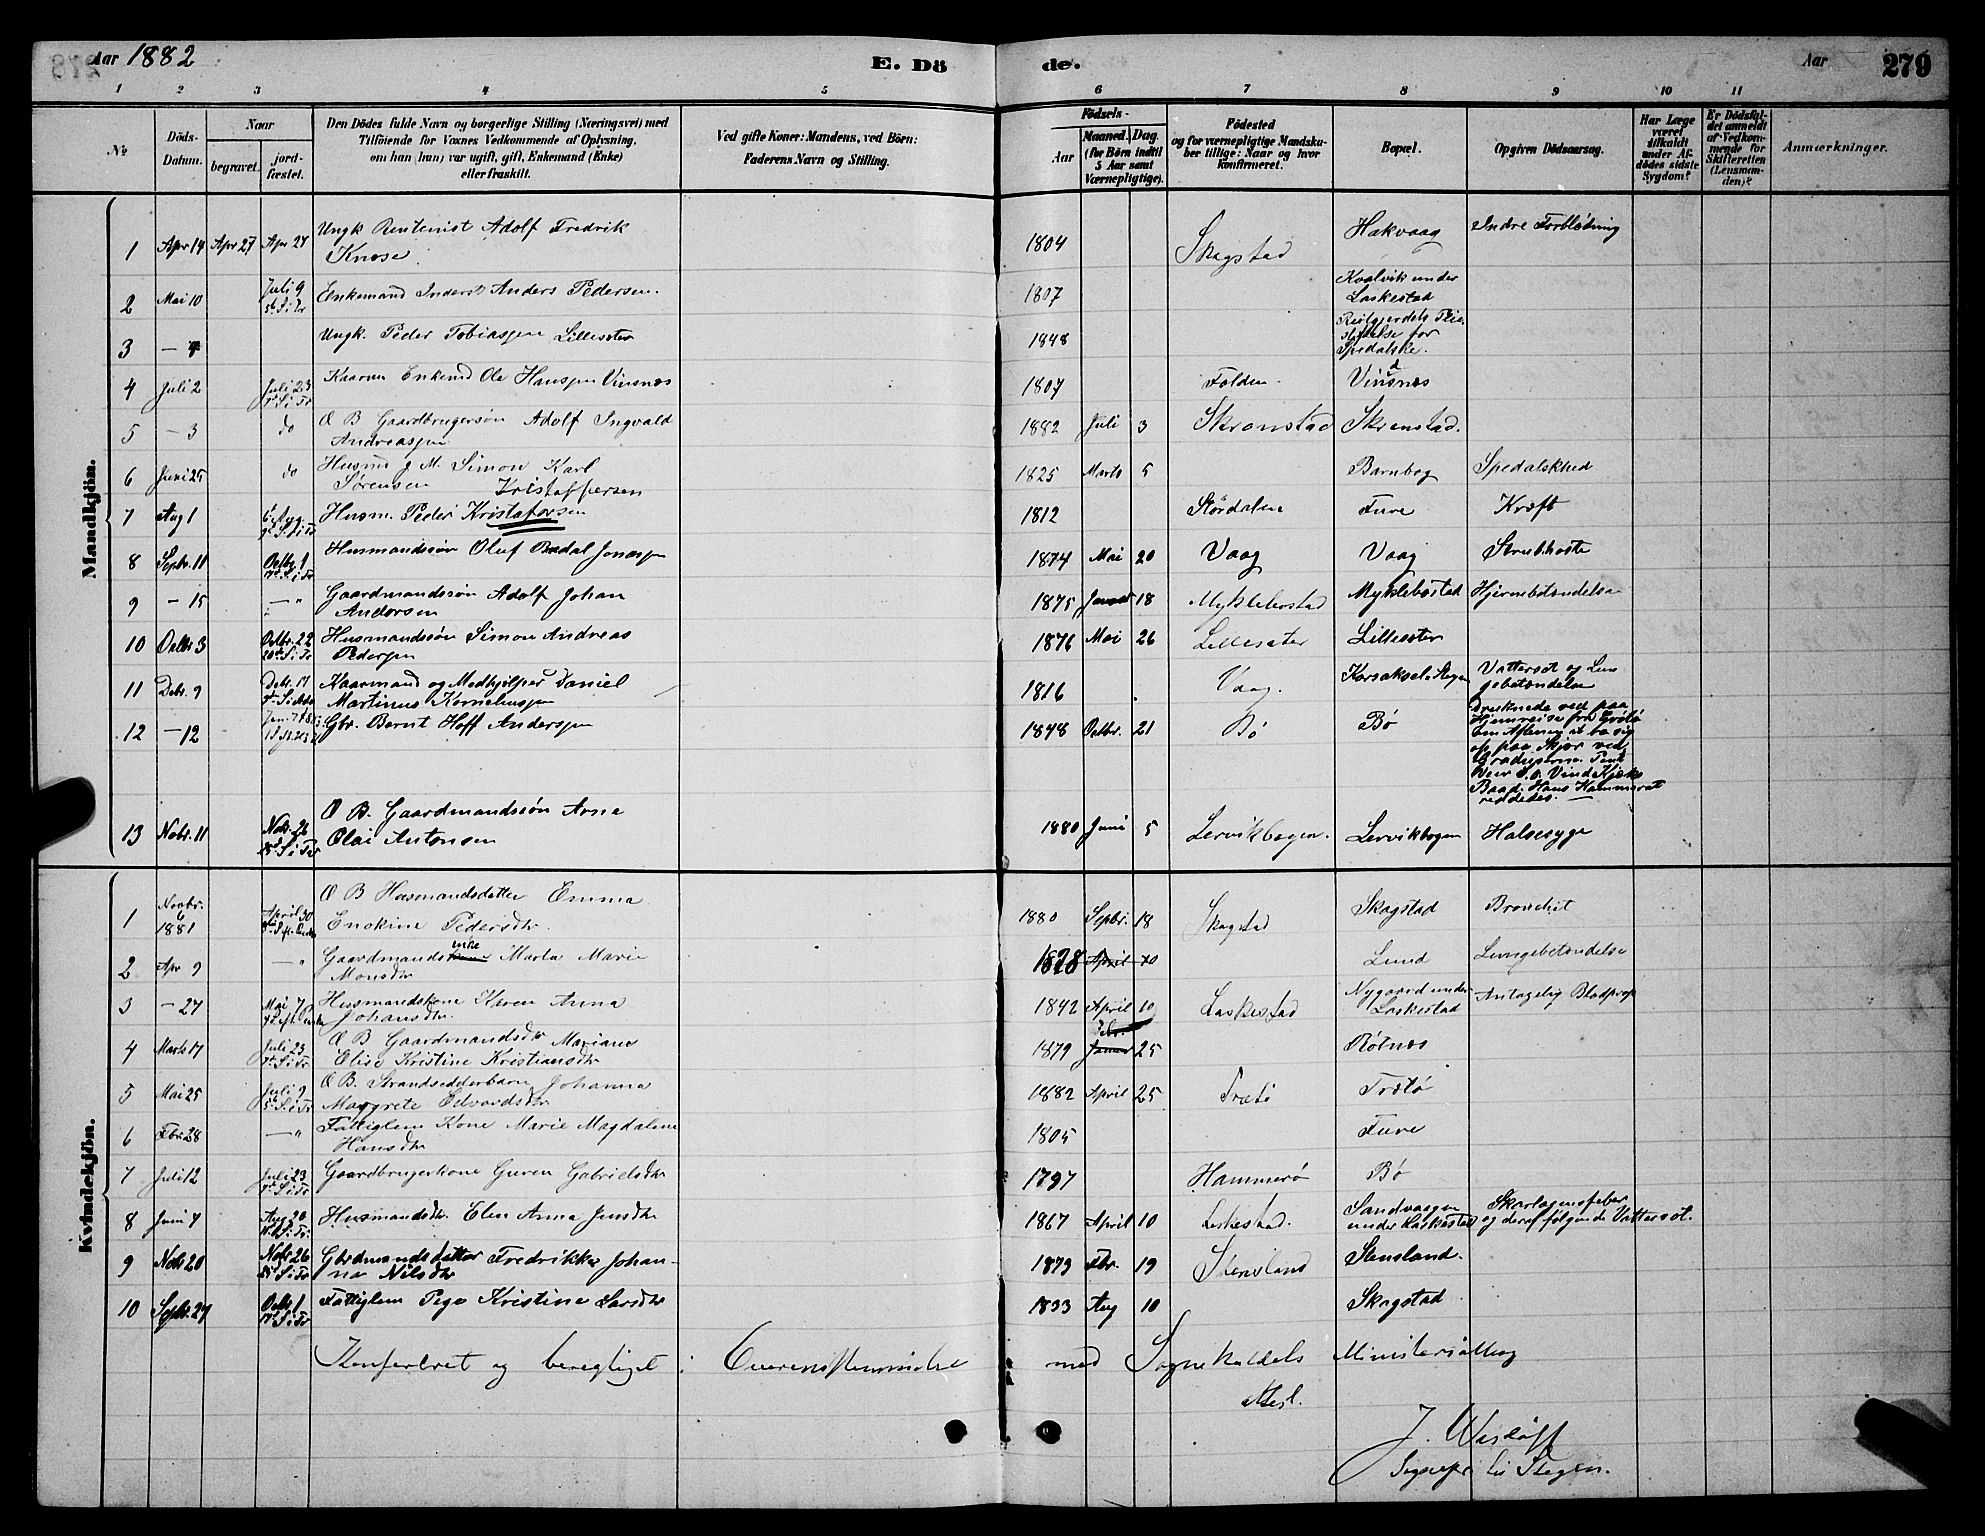 Aar 1882
E. Dö
de.
Aar
279
1 2 3 4 5 6 7 8 9 10 11
No.
Döds-
Datum.
Naar
begravet.
jord-
fæstet.
Den Dödes fulde Navn og borgerlige Stilling (Næringsvei) med
Tilföiende for Voxnes Vedkommende af Oplysning,
om han (hun) var ugift, gift, Enkemand (Enke)
eller fraskilt.
Ved gifte Koner: Mandens, ved Börn:
Faderens Navn og Stilling.
Födsels-
Aar
Maaned. Dag.
(for Børn indtil
5 Aar samt
Værnepligtige).
Födested
og for værnepligtige Mandsku-
ber tillige: Naar og hvor
konfirmeret.
Bopæl.
Opgiven Dödsaarsag.
Har Læge
været
tilkaldt
under Af-
dödes sidste
Sygdom?
Er Dödsfal-
det anmeldt
af Vedkom-
mende for
Skifteretten
(Lensman-
den)?
Anmærkninger.
Mandkjön.
1 Apr 14 Apr 27 Apr 27 Ungk Rentenist Adolf Fredrik
Knose. 1804 Skagstad Hakvaag Indre Forblødning
2 Mai 10 Juli 9
5 S i Tr Enkemand Inderst Anders Pedersen. 1807 Kvalvik under
Laskestad
3 Ungk. Peder Tobiassen Lillesæter 1848 Reitgjerdets Pleie-
stiftelse for
Spedalske.
4 Juli 2 Juli 23
7 S i Tr Kaarm Enkemd Ole Hanssen Vinsnæs 1807 Folden. Vinsnæs
5 — 3 do O B Gaardbrugersøn Adolf Ingvald
Andreassen 1882 Juli 3 Skranstad Skranstad.
6 Juni 25 do Husmd g M. Simon Karl
Sørensen 1825 Marts 5 Barnbog Spedalskhed
Kristoffersen
7 Aug 1 Husm. Peder Kristofersen 1812 Stördalen Fure Kræft
8 Septr. 11 Octbr. 1
17 S i Tr Husmandssøn Oluf Bødal Jonassen 1874 Mai 20 Vaag Vaag Strubehoste
9 — 15 — " Gaardmandssøn Adolf Johan
Andersen 1875 18 Myklebostad Myklebostad Hjernebetændelse
10 Octbr 3 Octbr. 22
20 S i Tr Husmandssøn Simon Andreas
Pedersen 1876 Mai 26 Lillesæter Lillesæter
11 Debr. 9 Debr. 17 Kaarmand og Medhjelper Daniel
Martinus Korneliussen 1816 Vaag. Korsaksel. Stegen Vattersot og Lun-
gebetændelse
12 — 12 Gbr. Bernt Hoff Anderssen 1848 Octbr. 21 Bø Bø Druknede ved paa
Hjemreise fra Grøtø
Em Aftenen at ta sig
op paa Skjær ved
Vind Kjæks
Baad. Hans Kammerat
reddedes. —
13 Nobr. 11 Nobr. 26
25 S i Tr O B. Gaardmandssøn Arne
Olai Antonsen 1880 Juni 5 Lervikbogen. Lervikbogen Halsesyge
Kvindekjön.
1 Novbr.
6
1881 April 30 O B Husmandsdatter Emma
Enokine Pedersdtr. 1880 Septbr. 18 Skagstad Skagstad Bronchit
2 Apr 9 — " Gaardmandsenke Marta Marie
Monsdtr 1828 April 10 Lund Lungebetændelse
3 — 27 Mai 7 Husmandskone Karen Anna
Johansdtr. 1842 April 10 Laskestad Nygaard under
Laskestad Antagelig Blodprop
4 Marts 17 Juli 23
7 S i Tr. O B Gaardmandsdtr Mariane
Elise Kristine Kristiansdtr 1879 Febr.
Januar 25 Røtnes
5 Mai 25 Juli 9
5 S i Tr O B. Strandsedderbarn Johanna
Margrete Edvardsdtr 1882 April 25 Trætø Trætø
6 Fbr. 28 — " Fattiglem Kone Marie Magdalene
Hansdtr 1805 Fure
7 Juli 12 Juli 23
7 S i Tr Gaardbrugerkone Guren Gabrielsdtr 1797 Hammerø Bø
8 Juni 7 Aug 20
11 S i Tr. Husmandsdtr. Elen Anna Jensdtr 1867 April 10 Laskestad. Sandvaagen
under Laskestad Skarlagensfeber
og deraf følgende Vattersot.
9 Nobr 20 Nobr 26
25 S i Tr Gbrdmandsdatter Fredrikke Johan-
na Nilsdtr 1879 Fbr. 19 Stensland Stensland.
10 Septbr. 27 Octbr 1
17 S i Tr Fattiglem Pige Kristine Larsdtr 1833 Aug 10 Skagstad
Konfereret og berigtiget i Overensstemmelse med Sognekaldets Ministerialbog
Attest.
J. Wisløff
Sognepr. til Stegen.